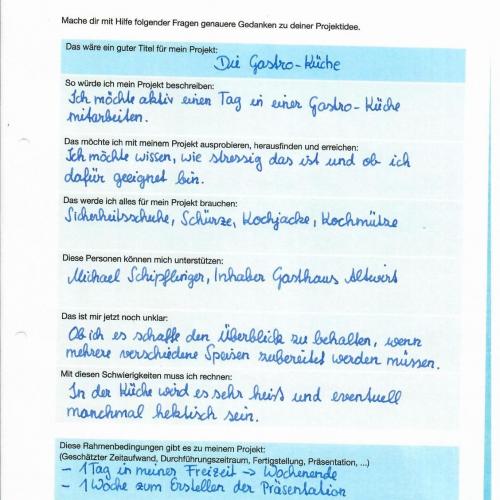 Mache dir mit Hilfe folgender Fragen genauere Gedanken zu deiner Projektidee.
Das wäre ein guter Titel für mein Projekt:
Die Gastro-Küche
So würde ich mein Projekt beschreiben:
Ich möchte aktiv einen Tag in einer Gastro-Küche
mitarbeiten.
Das möchte ich mit meinem Projekt ausprobieren, herausfinden und erreichen:
Ich möchte wissen, wie stressig das ist und ob ich
dafür geeignet bin.
Das werde ich alles für mein Projekt brauchen:
Sicherheitsschuhe, Schürze, Kochjacke, Kochmütze
Diese Personen können mich unterstützen:
Michael Schipflinger, Inhaber Gasthaus Altwirt
Das ist mir jetzt noch unklar:
Ob ich es schaffe den Überblick zu behalten, wenn
mehrere verschiedene Speisen zubereitet werden müssen.
Mit diesen Schwierigkeiten muss ich rechnen:
In der Küche wird es sehr heiß und eventuell
manchmal hektisch sein.
Diese Rahmenbedingungen gibt es zu meinem Projekt:
(Geschätzter Zeitaufwand, Durchführungszeitraum, Fertigstellung, Präsentation, ...)
- 1 Tag in meiner Freizeit → Wochenende
- 1 Woche zum Erstellen der Präsentation